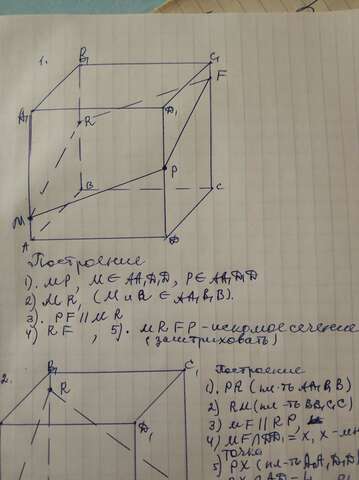 1.
B₁ C₁
F
A₁ D₁
R
P
B C
M
A D
Построение
1). MP, M ∈ AA₁D₁D, P ∈ AA₁D₁D
2) MR, (M и R ∈ AA₁B₁B).
3). PF || MR
4) RF , 5). MRFP - искомое сечение
(заштриховать)
2.
B₁ C₁
R
D₁
Построение
1). PR (пл-ть AA₁B₁B)
2) RM (пл-ть BB₁C₁C)
3) MF || RP,
4) MF ∩ DD₁ = X, X -
точка
5) PX (пл-ть A₁A₁D₁D)